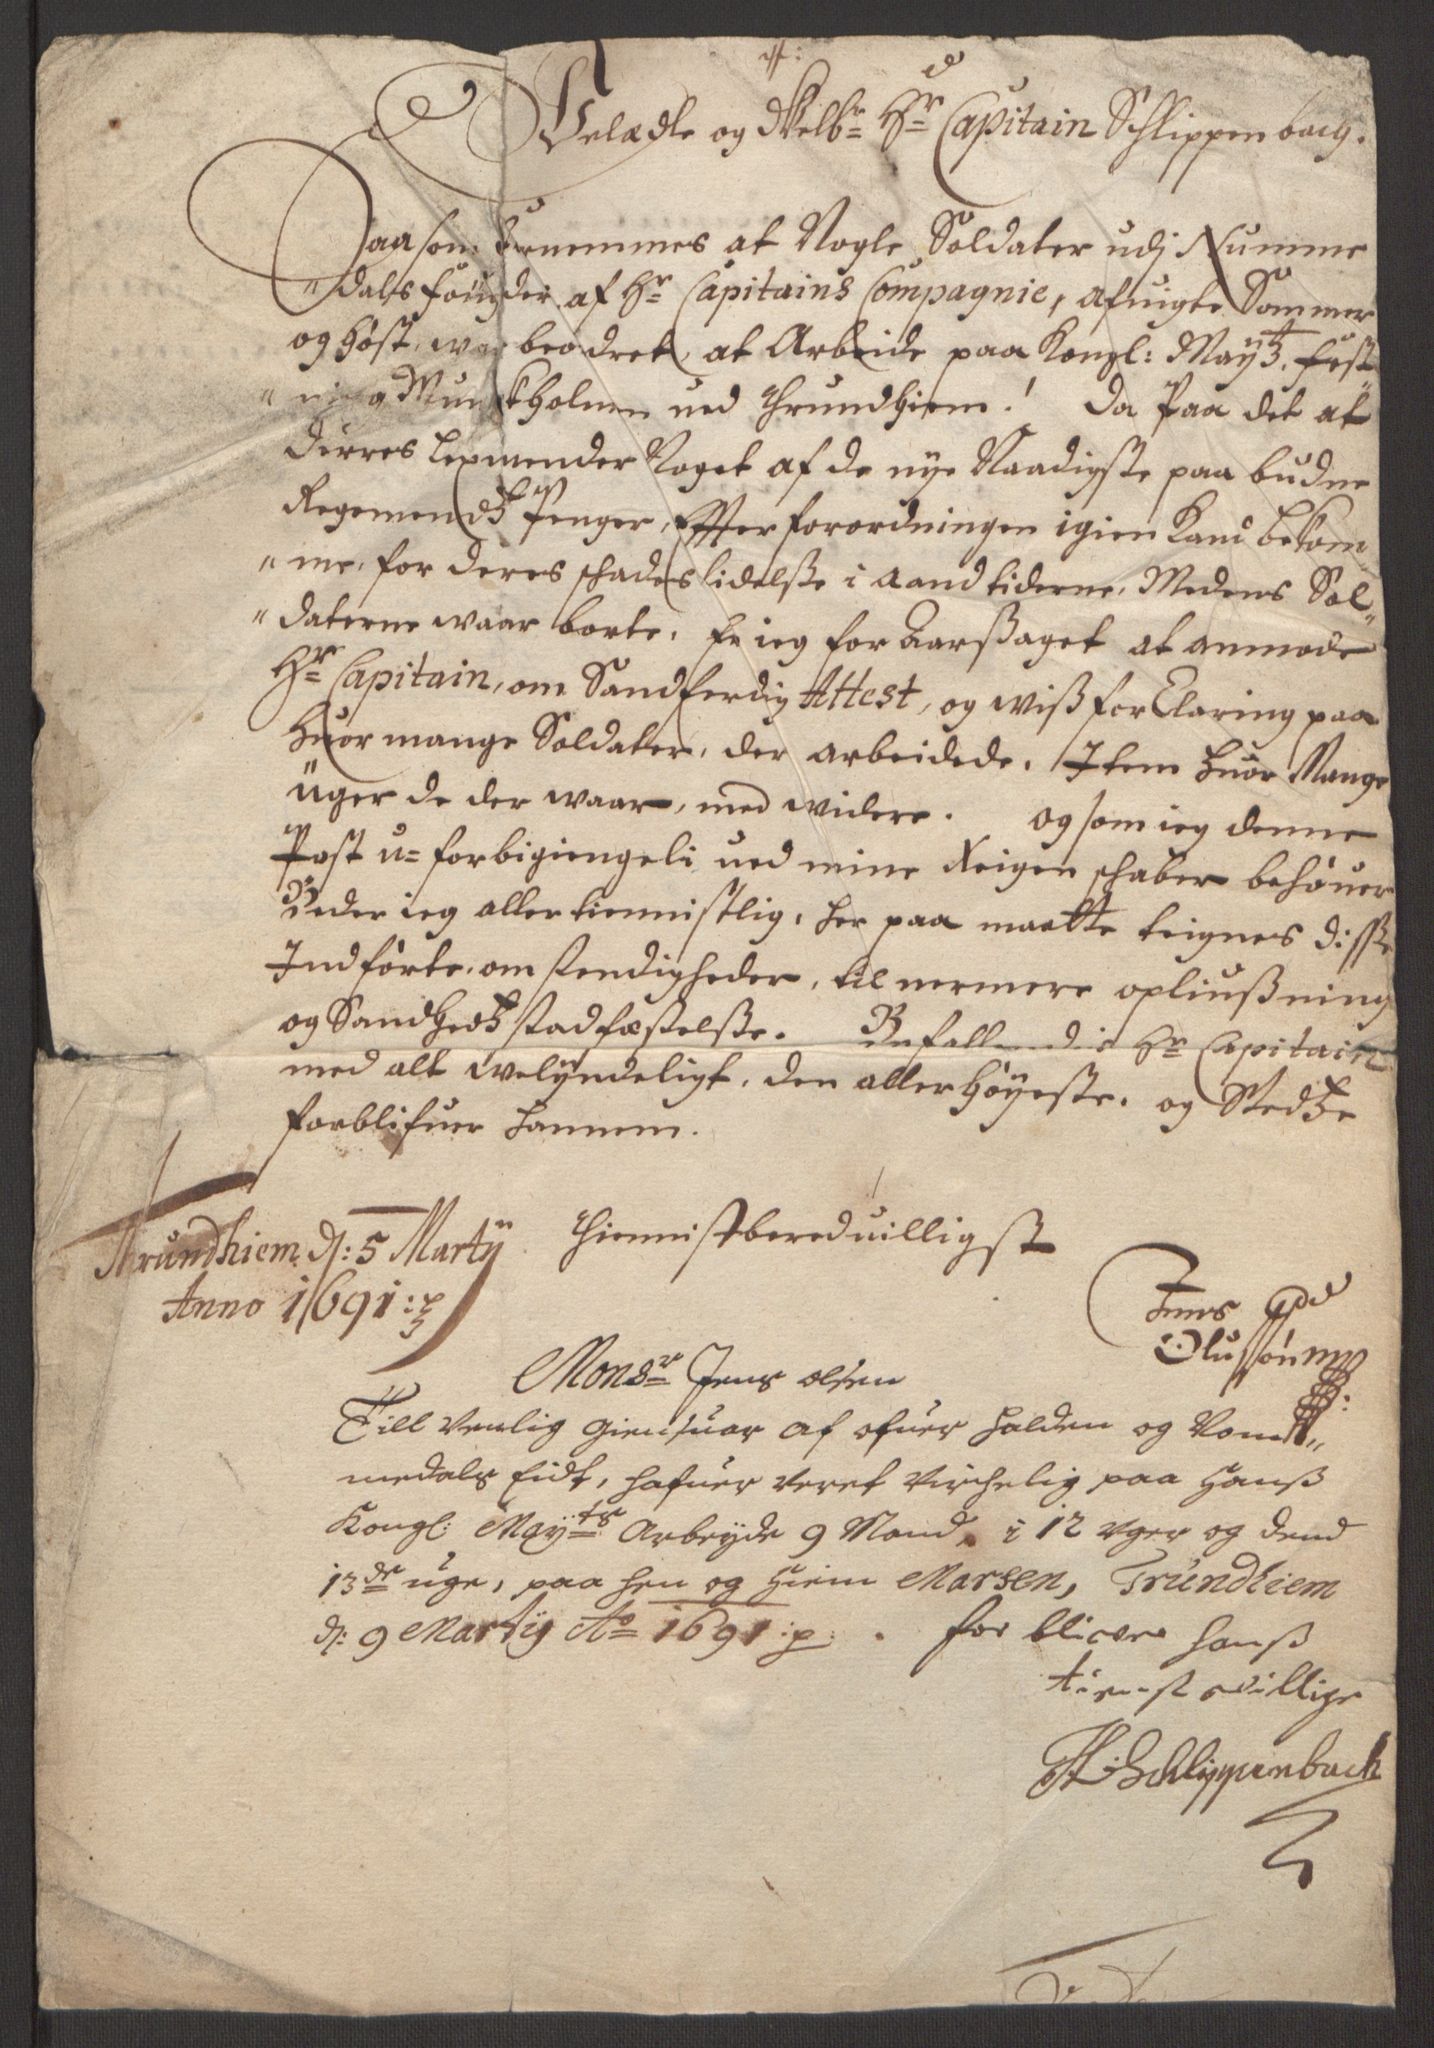 Velædle og Welb: Hr: Capitain Schlippenbag.
Saasom fornemmes at Nogle Soldater udj Numme
"dals fougderi af Hr: Capitains Compagnie, afuigte Sommer
og Høst, war beodret, at Arbeide paa Kongl: Maytz. Fest
"ning Munkholmen ued Thrundhiem! Da Paa det at
Deres Legmender Noget af de nye Naadigste paa budne
Regementz Penger, Efter forordningen igien Kand bekom
"me, for deres schades lidelsse i Aandtiderne, Medens Sol"
"daterne waar borte. Er ieg for Aarsaget at anmode
Hr: Capitain, om Sandferdig Attest, og wiss forclaring paa
Huor mange Soldater, der arbeidede. Item huor Mange
uger de der waar, med widere. og som ieg denne
Post u=forbigiengeli ued mine Reigenschaber behøuer
Beder ieg allertiennistlig, her paa maatte teignes disse
Indførte omstendigheder, til nermere opliussning
og Sandhedtz stadfæstelsse. Befallendis Hr: Capitain
med alt welyndeligt, den allerHøyeste. og Stedtze
forblifuer hannem.
Thiennistbereduilligst
Thrundhiem d: 5 Martij
Anno 1691:
Jens
Olussøn
Monsr: Jens olsen
Till venlig giensuar af ofuer halden og Nom"
medals Eidt, hafuer veret virchelig paa Hanss
Kongl: Mayts Arbeyde 9 Mand, i 12 vger og dend
13de uge, paa hen og Hiem Marsen, Trundhiem
d: 9 Martij Ao 1691:
for blicver hanss
tienst villige
Schlippenbach